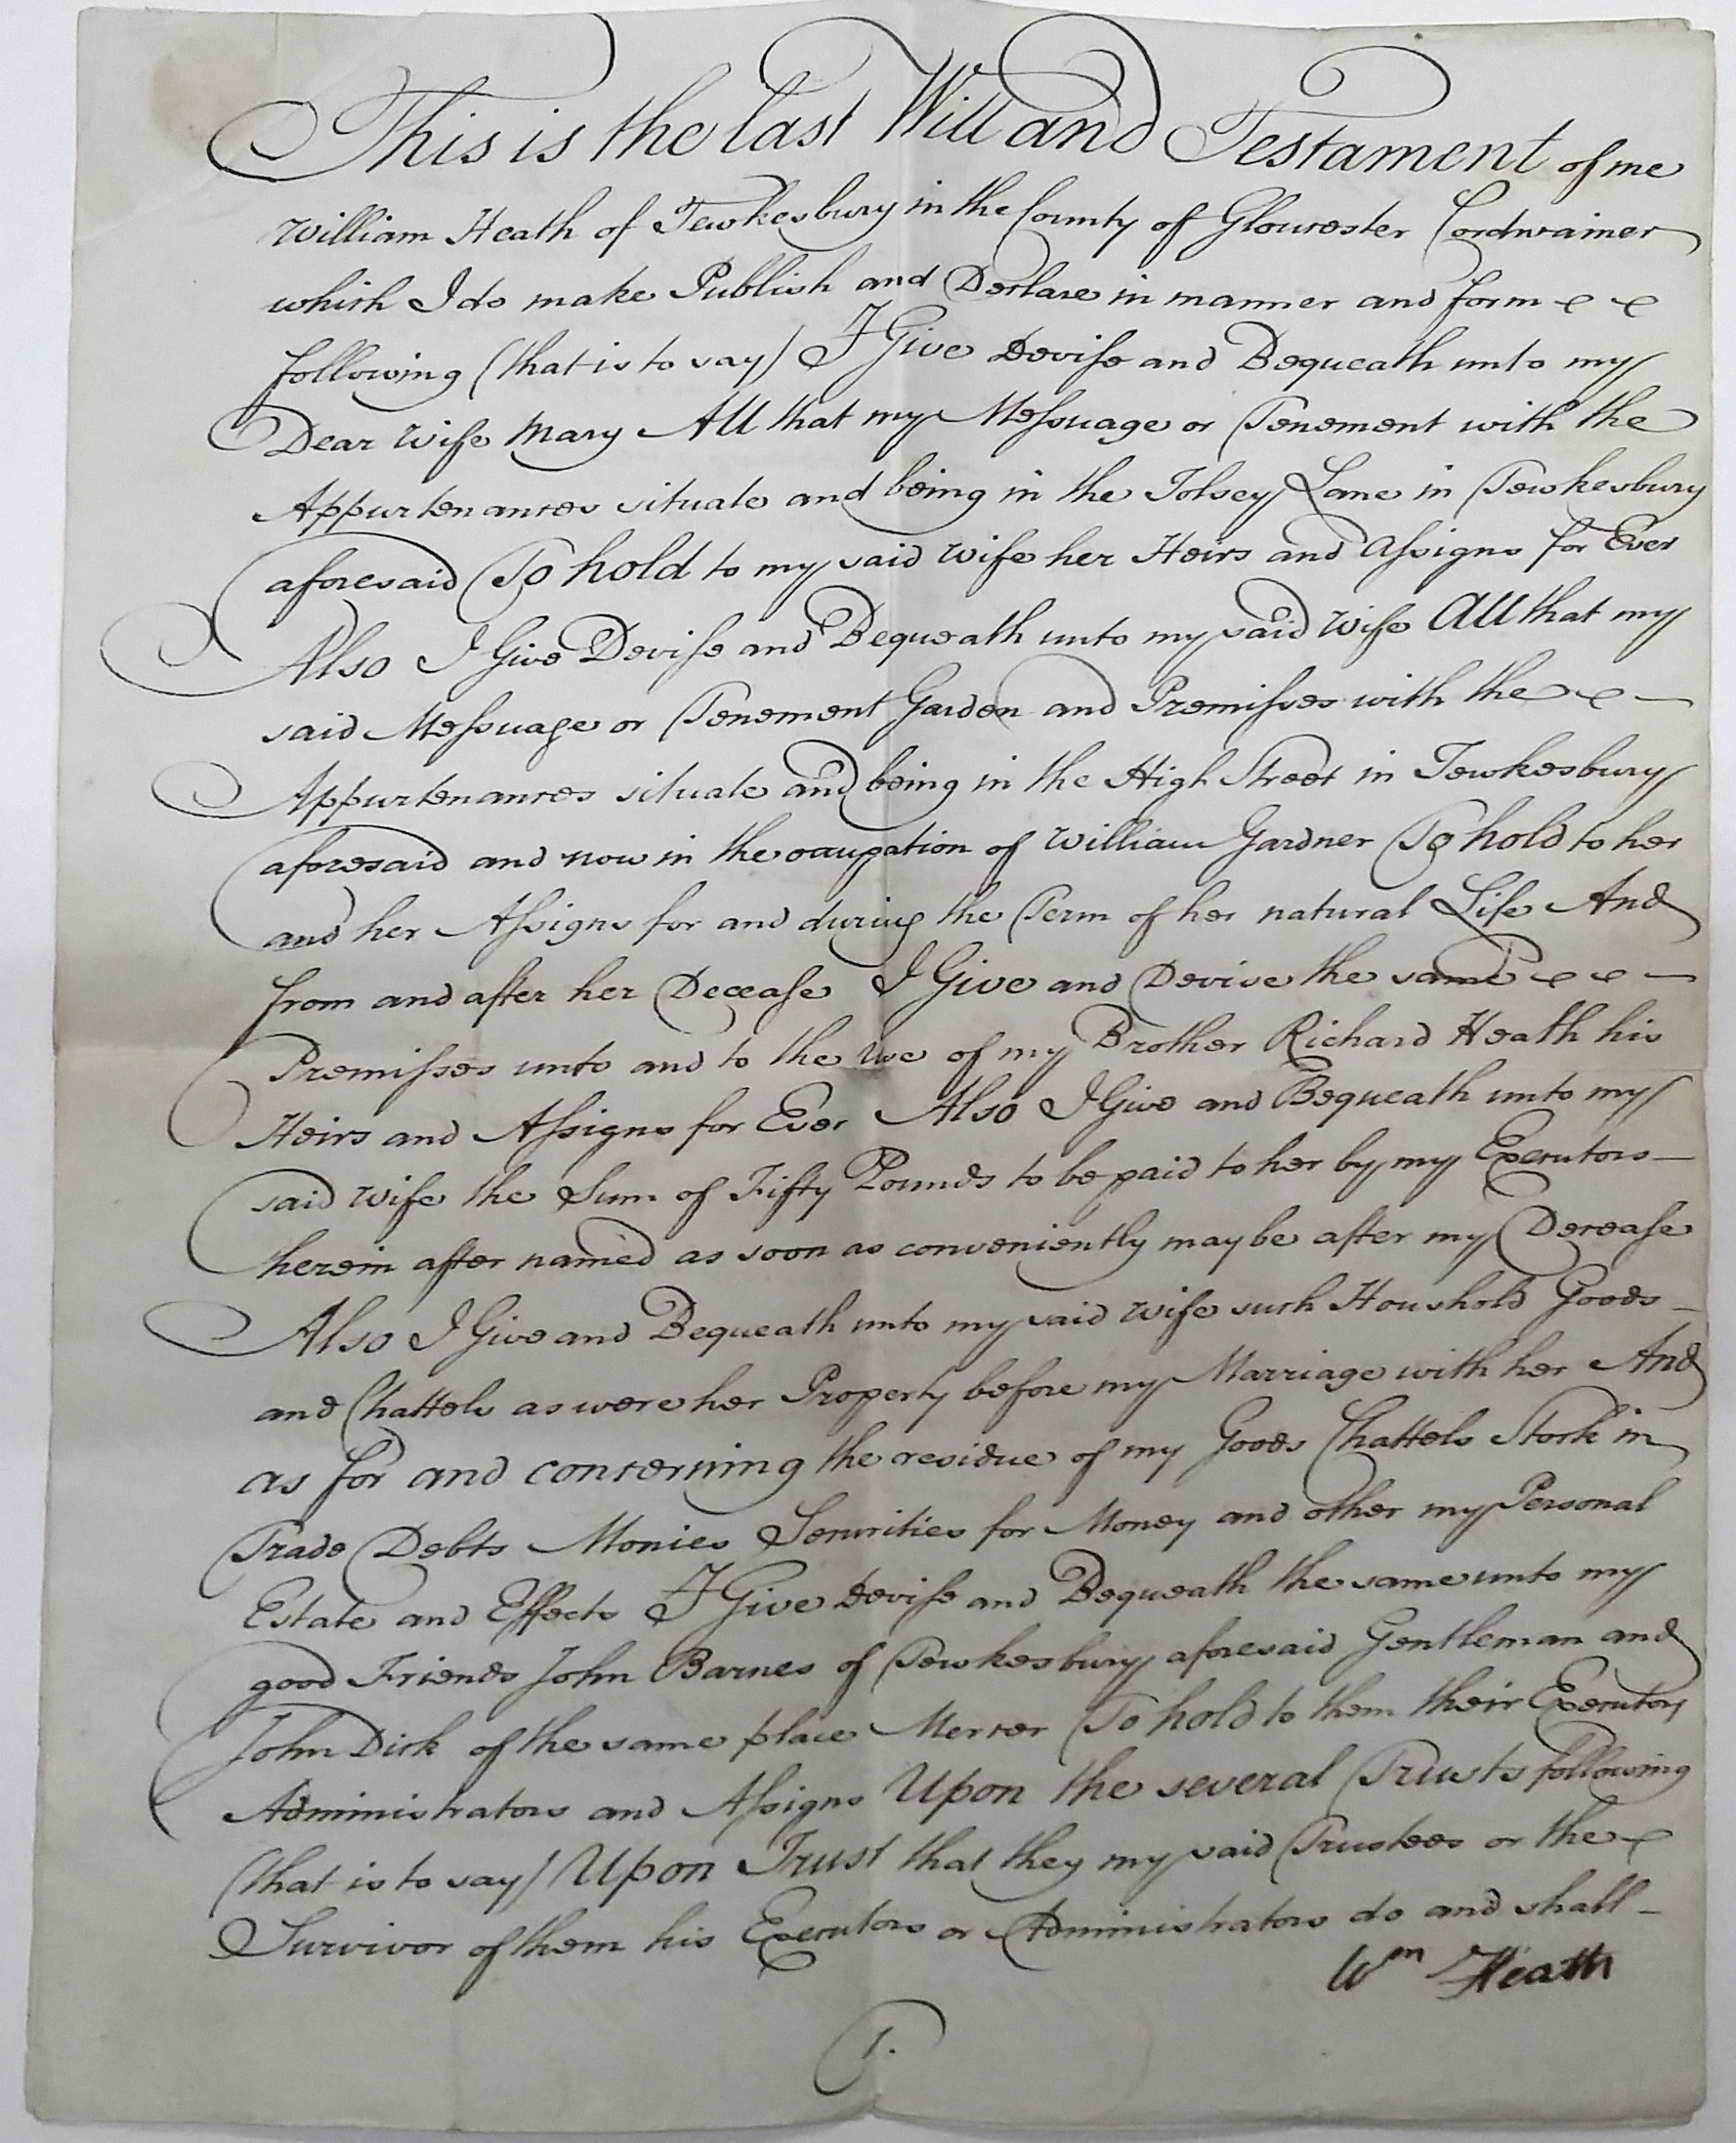 This is the last Will and Testament of me
William Heath of Tewkesbury in the County of Gloucester Cordwainer
which I do make Publish and Declare in manner and form
following (that is to say) I Give Devise and Bequeath unto my
Dear Wife Mary All that my Messuage or Tenement with the
Appurtenances situate and being in the Tolsey Lane in Tewkesbury
aforesaid To hold to my said Wife her Heirs and Assigns for Ever
Also I Give Devise and Bequeath unto my said Wife All that my
said Messuage or Tenement Garden and Premisses with the
Appurtenances situate and being in the High Street in Tewkesbury
aforesaid and now in the occupation of William Gardner To hold to her
and her Assigns for and during the Term of her natural Life And
from and after her Decease I Give and Devise the same
Premisses unto and to the Use of my Brother Richard Heath his
Heirs and Assigns for Ever Also I Give and Bequeath unto my
said Wife the Sum of Fifty Pounds to be paid to her by my Executors
herein after named as soon as conveniently may be after my Decease
Also I Give and Bequeath unto my said Wife such Houshold Goods
and Chattels as were her Property before my Marriage with her And
as for and concerning the residue of my Goods Chattels Stock in
Trade Debts Monies Securities for Money and other my Personal
Estate and Effects I Give Devise and Bequeath the same unto my
good Friends John Barnes of Tewkesbury aforesaid Gentleman and
John Dick of the same place Mercer To hold to them their Executors
Administrators and Assigns Upon the several Trusts following
(that is to say) Upon Trust that they my said Trustees or the
Survivor of them his Executors or Administrators do and shall
Wm Heath
1.